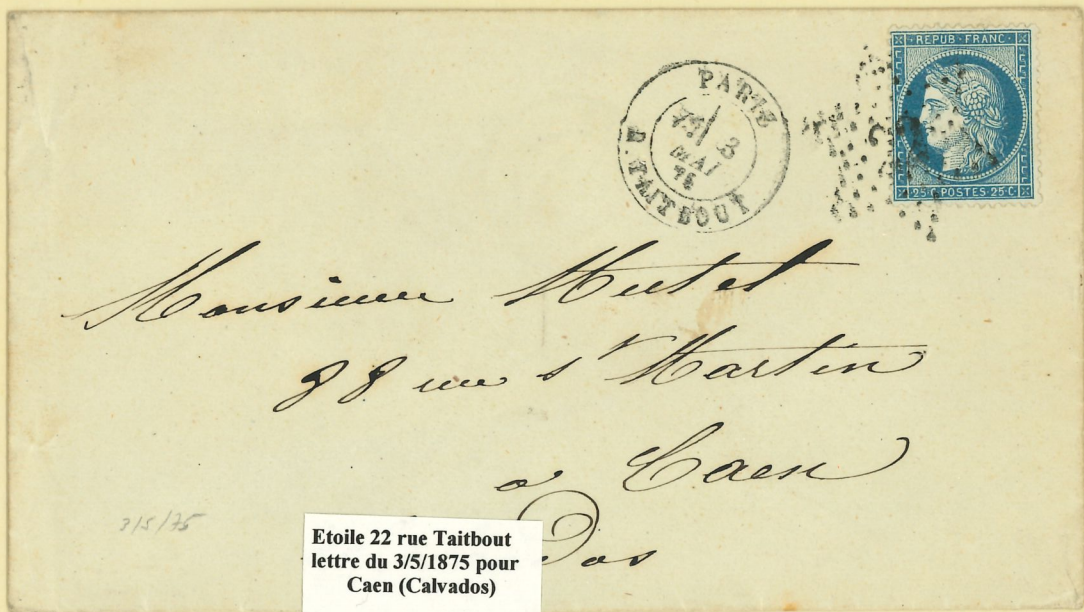 REPUB·FRANC·
25·C·POSTES·25·C·
PARIS
3
MAI
75
R. TAITBOUT
Monsieur Mutel
88 rue St Martin
à Caen
dos
3/5/75
Etoile 22 rue Taitbout
lettre du 3/5/1875 pour
Caen (Calvados)